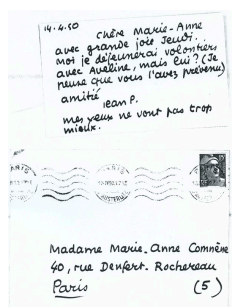 14.4.50
chère Marie-Anne
avec grande joie Jeudi..
Moi je déjeunerai volontiers
avec Aveline, mais lui? (Je
pense que vous l'avez prévenu)
amitié
Jean P.
mes yeux ne vont pas trop
mieux.
PARIS
PARIS
AUSTERLITZ
Madame Marie-Anne Comnène
40, rue Denfert-Rochereau
Paris (5)